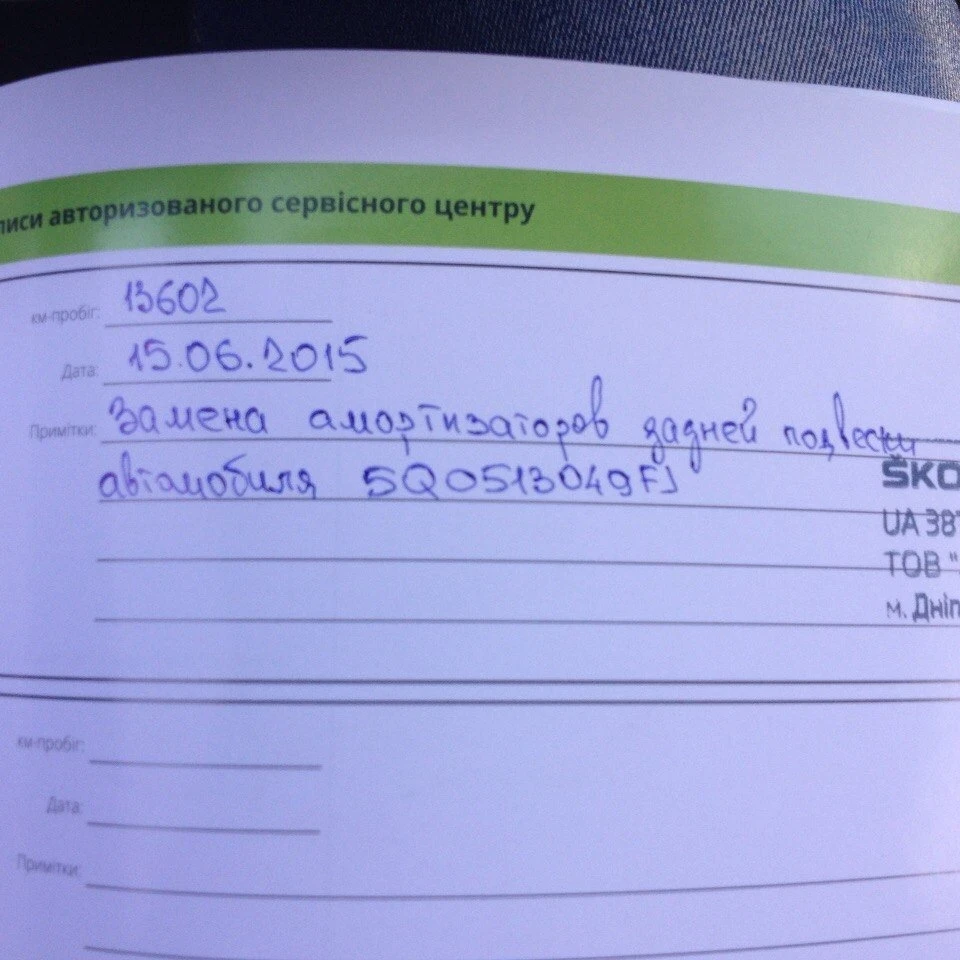 писи авторизованого сервісного центру
км-пробіг: 13602
Дата: 15.06.2015
Примітки: Замена амортизаторов задней подвески
автомобиля 5Q0513049FJ
ŠKO
UA 38
ТОВ "
м. Дніп
км-пробіг:
Дата:
Примітки: